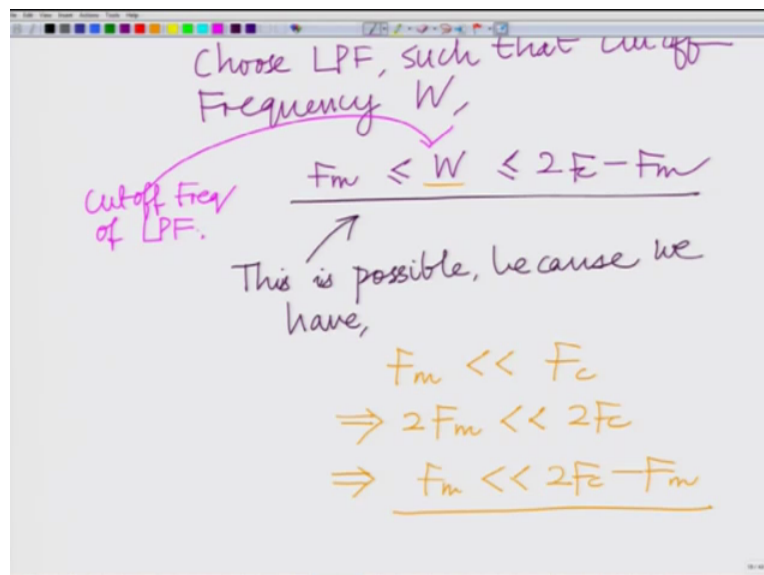 Choose LPF, such that cutoff
Frequency W,
Fm ≤ W ≤ 2Fc - Fm
Cutoff Freq
of LPF.
This is possible, because we
have,
Fm << Fc
⇒ 2Fm << 2Fc
⇒ Fm << 2Fc - Fm